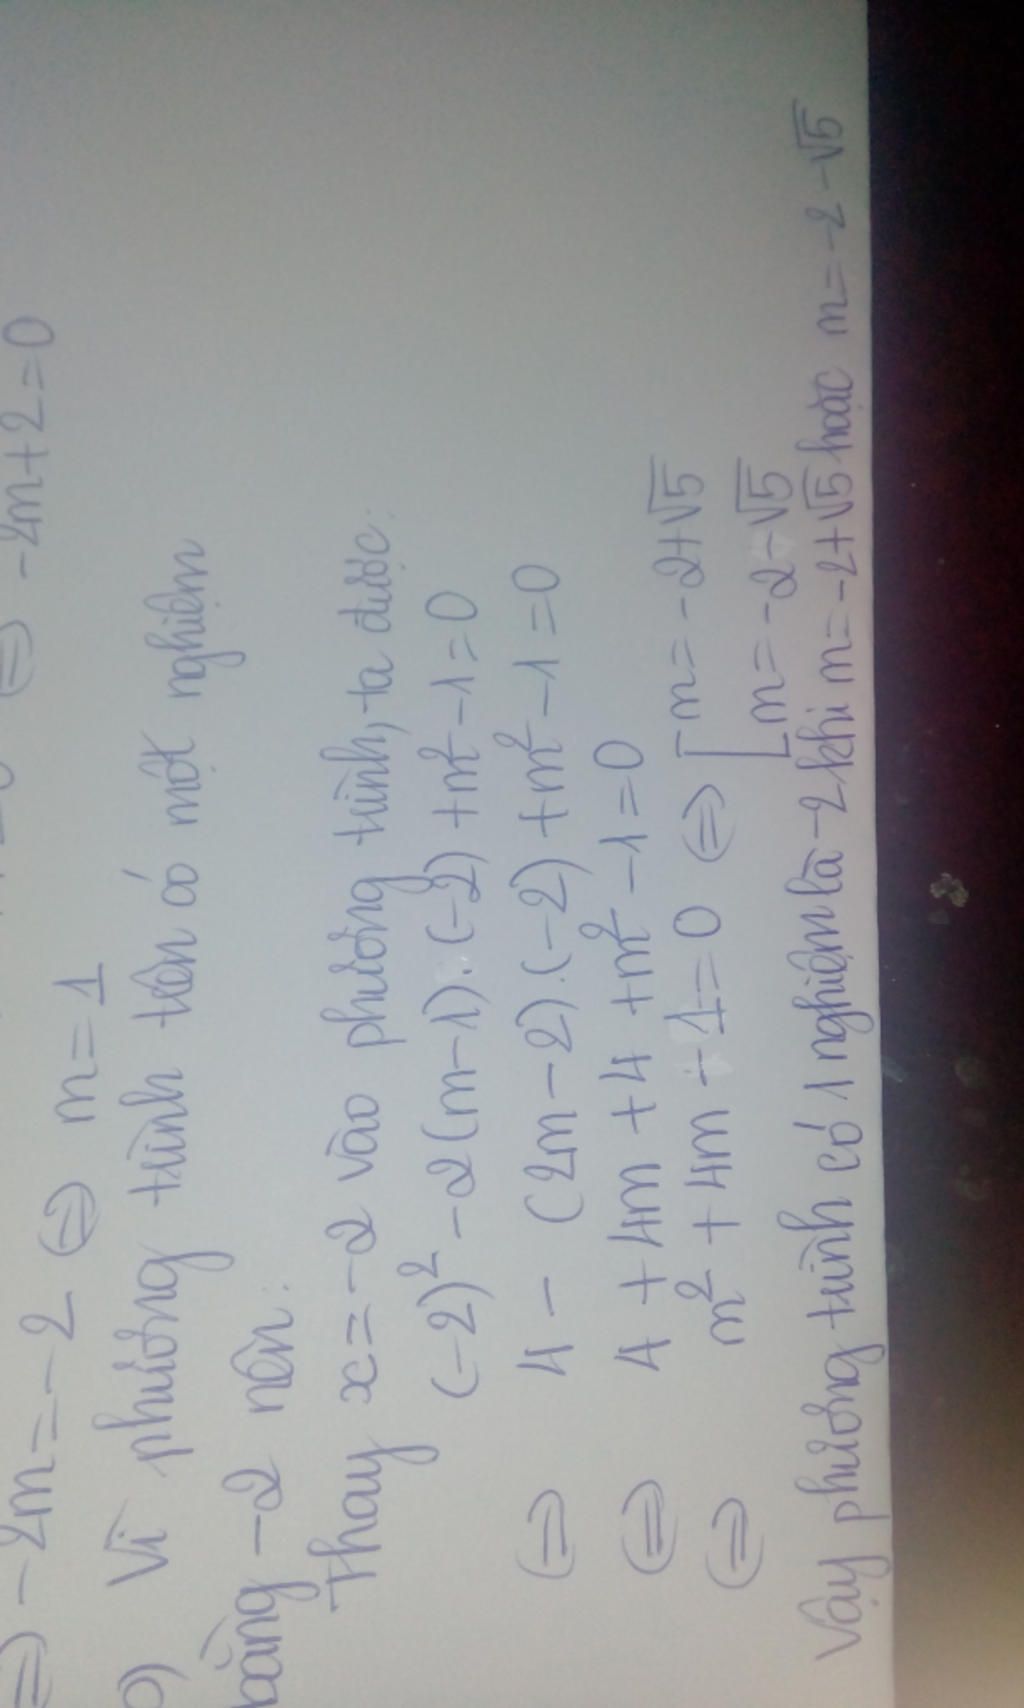 ⇔ -2m+2=0
⇔ -2m=-2 ⇔ m=1
Vì phương trình trên có một nghiệm
bằng -2 nên:
Thay x=-2 vào phương trình, ta được:
(-2)² -2(m-1).(-2) +m²-1=0
⇔ 4 - (2m-2).(-2) +m²-1=0
⇔ 4 +4m +4 +m²-1=0
⇔ m² +4m -1=0 ⇔ [ m=-2+√5
m=-2-√5
Vậy phương trình có 1 nghiệm là -2 khi m=-2+√5 hoặc m=-2-√5